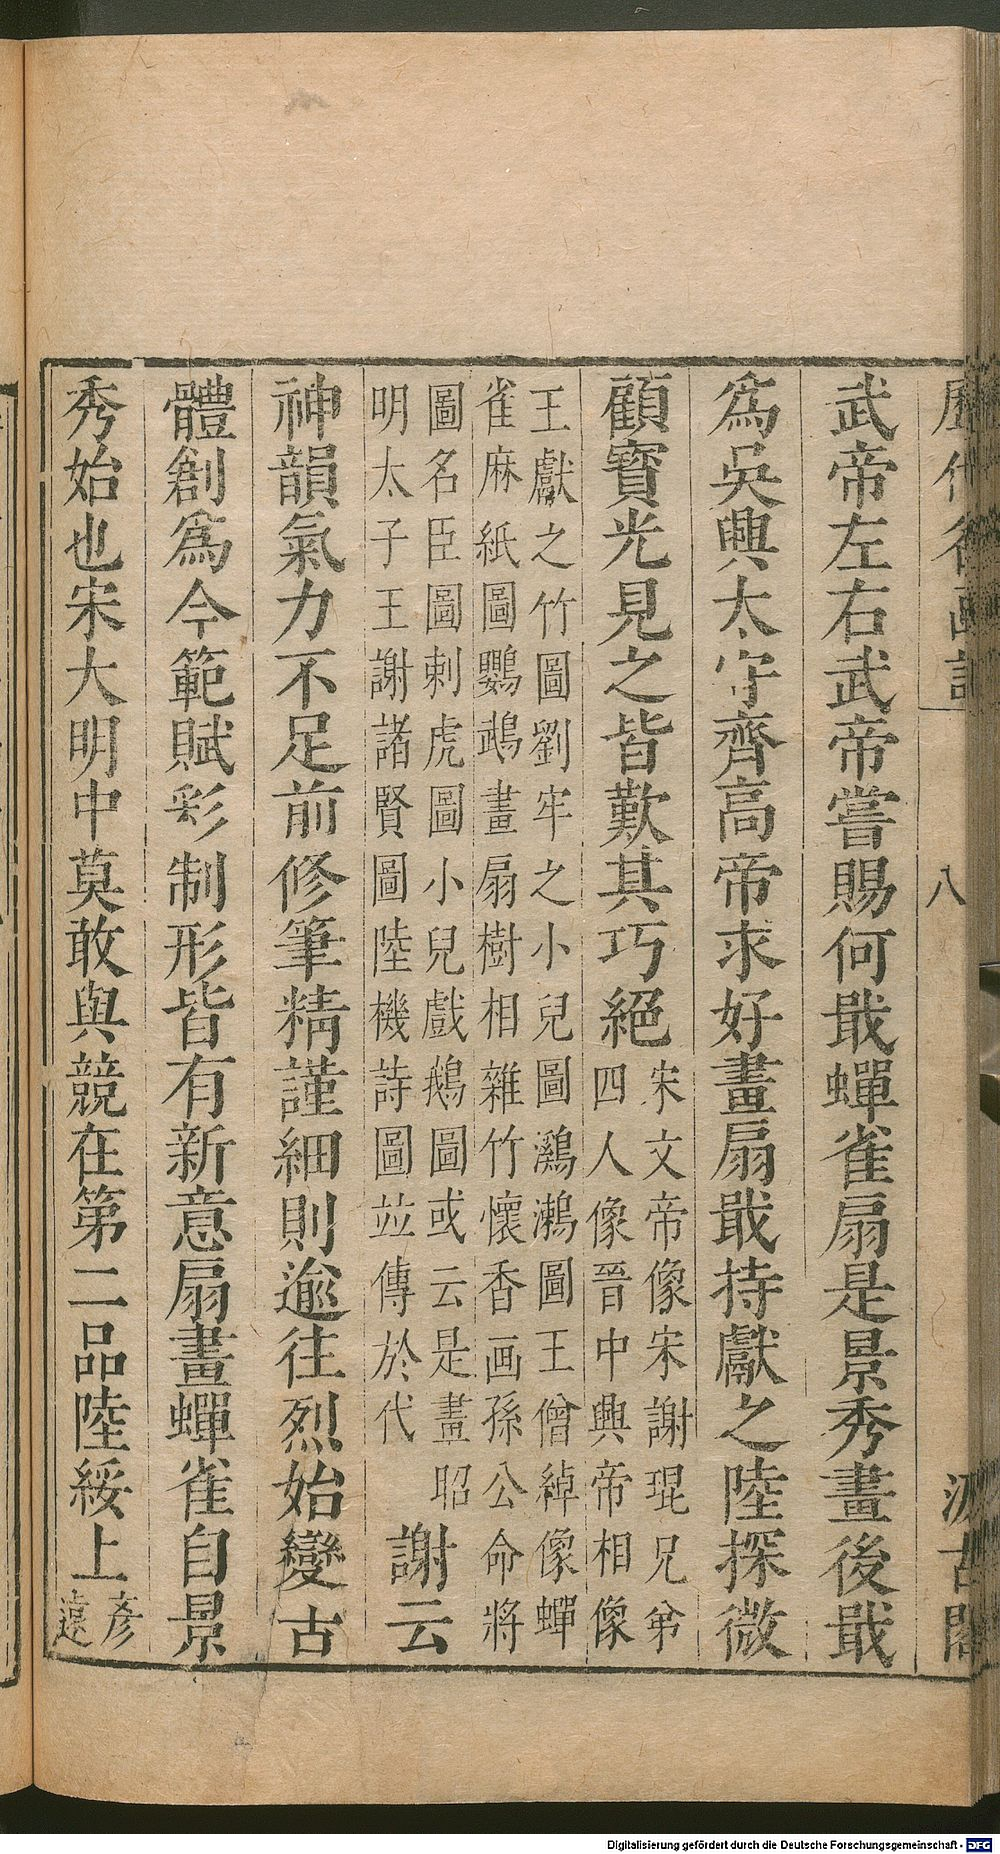 武帝左右武帝嘗賜何戢蟬雀扇是景秀畫後戢
爲吳興太守齊高帝求好畫扇戢持獻之陸探微
顧寶光見之皆歎其巧絕
宋文帝像宋謝琨兄弟
四人像晉中興帝相像
王獻之竹圖劉牢之小兒圖鸂鶒圖王僧綽像蟬
雀麻紙圖鸚鵡畫扇樹相雜竹懷香画孫公命將
圖名臣圖刺虎圖小兒戲鵝圖或云是畫昭
明太子王謝諸賢圖陸機詩圖並傳於代
謝云
神韻氣力不足前修筆精謹細則逾往烈始變古
體創爲今範賦彩制形皆有新意扇畫蟬雀自景
秀始也宋大明中莫敢與競在第二品陸綏上
彥
遠
八
Digitalisierung gefördert durch die Deutsche Forschungsgemeinschaft - DFG